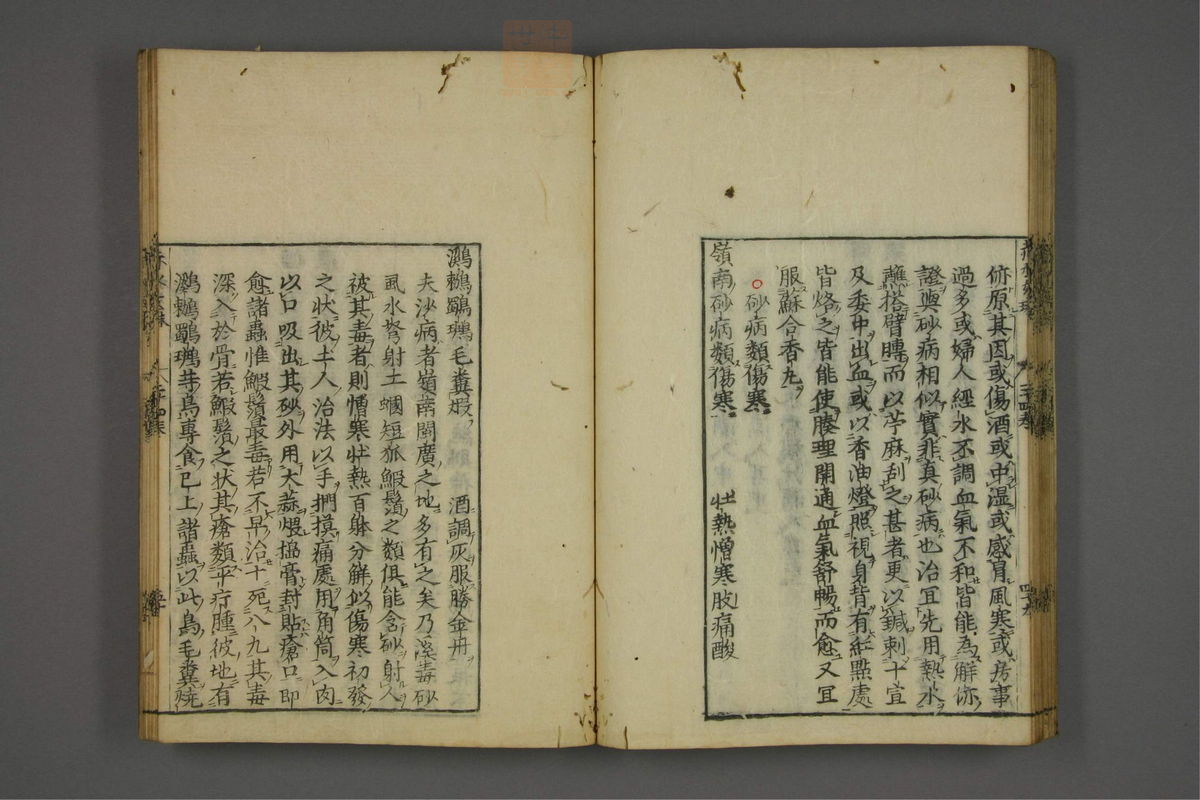 俯原其因或傷酒或中湿或感冐風寒或房事
過多或婦人經水不調血氣不和皆能為觧㑊
證與砂病相似實非真砂病也治宜先用熱水
蘸搭臂膊而以苧麻刮之甚者更以鍼刺十宣
及委中出血或以香油燈照視身背有紅㸃處
皆烙之皆能使腠理開通血氣舒暢而愈又宜
服蘇合香丸
○砂病類傷寒
嶺南砂病類傷寒 壯熱憎寒肢痛酸
鸂鶒鸀瑦毛糞蝦 酒調灰服勝金丹
夫沙病者嶺南閩廣之地多有之矣乃溪毒砂
虱水弩射土蟈短狐鰕鬚之類俱能含砂射人
被其毒者則憎寒壯熱百躰分觧似傷寒初發
之状彼土人治法以手捫摸痛處用角筒入肉
以口吸出其砂外用大蒜煨搗膏封貼瘡口即
愈諸蟲惟鰕鬚最毒若不早治十死八九其毒
深入於骨若鰕鬚之状其瘡類乎疔腫彼地有
鸂鶒鸀瑦䓁鳥專食已上諸蟲以此鳥毛糞燒